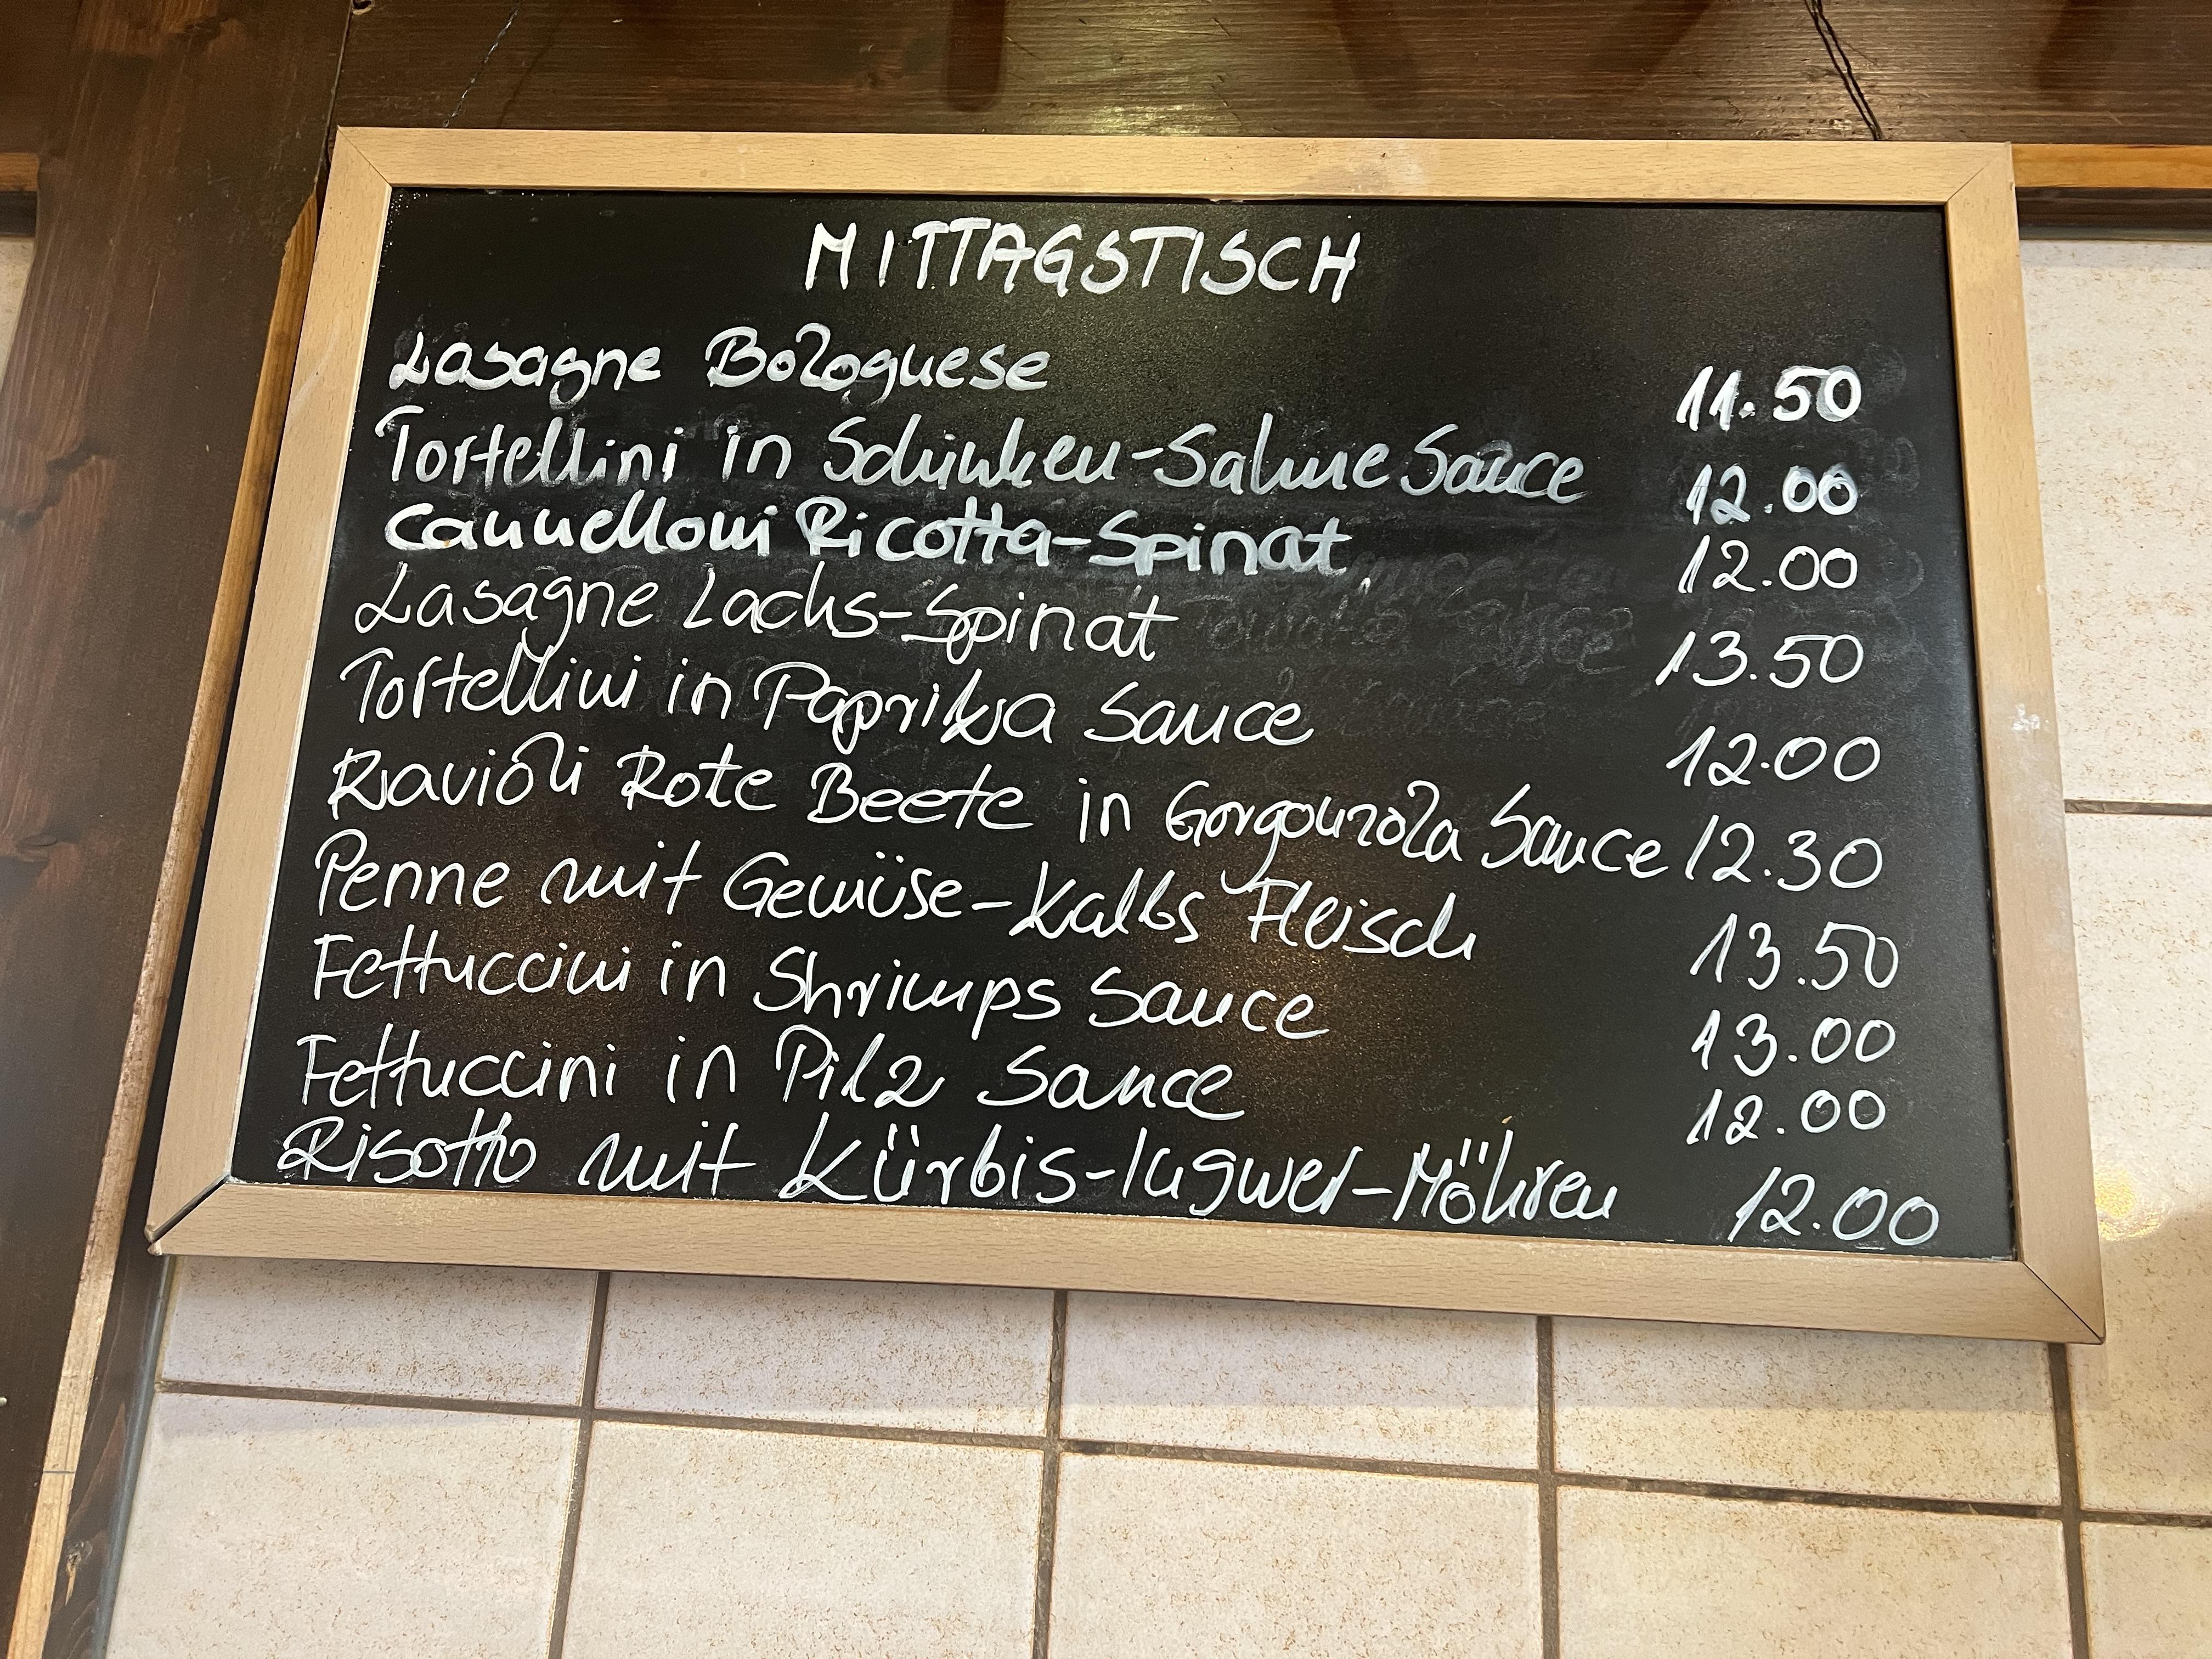 MITTAGSTISCH
Lasagne Bolognese 11.50
Tortellini in Schinken-Sahne Sauce 12.00
Cannelloni Ricotta-Spinat 12.00
Lasagne Lachs-Spinat 13.50
Tortellini in Paprika Sauce 12.00
Ravioli Rote Beete in Gorgonzola Sauce 12.30
Penne mit Gemüse-Kalbs Fleisch 13.50
Fettuccini in Shrimps Sauce 13.00
Fettuccini in Pilz Sauce 12.00
Risotto mit Kürbis-Ingwer-Möhren 12.00